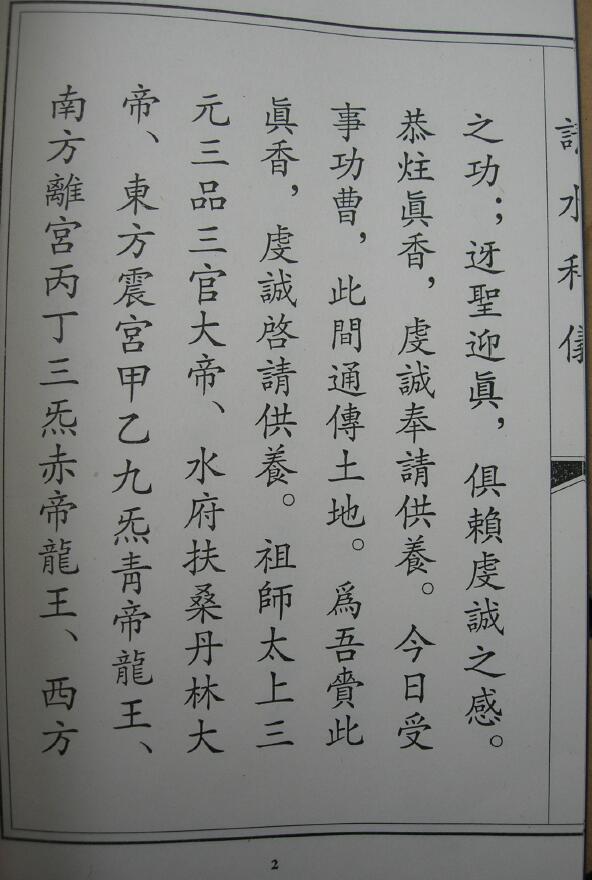 請水科儀
之功；迓聖迎眞，俱賴虔誠之感。
恭炷眞香，虔誠奉請供養。今日受
事功曹，此間通傳土地。爲吾賫此
眞香，虔誠啓請供養。祖師太上三
元三品三官大帝、水府扶桑丹林大
帝、東方震宮甲乙九炁靑帝龍王、
南方離宮丙丁三炁赤帝龍王、西方
2